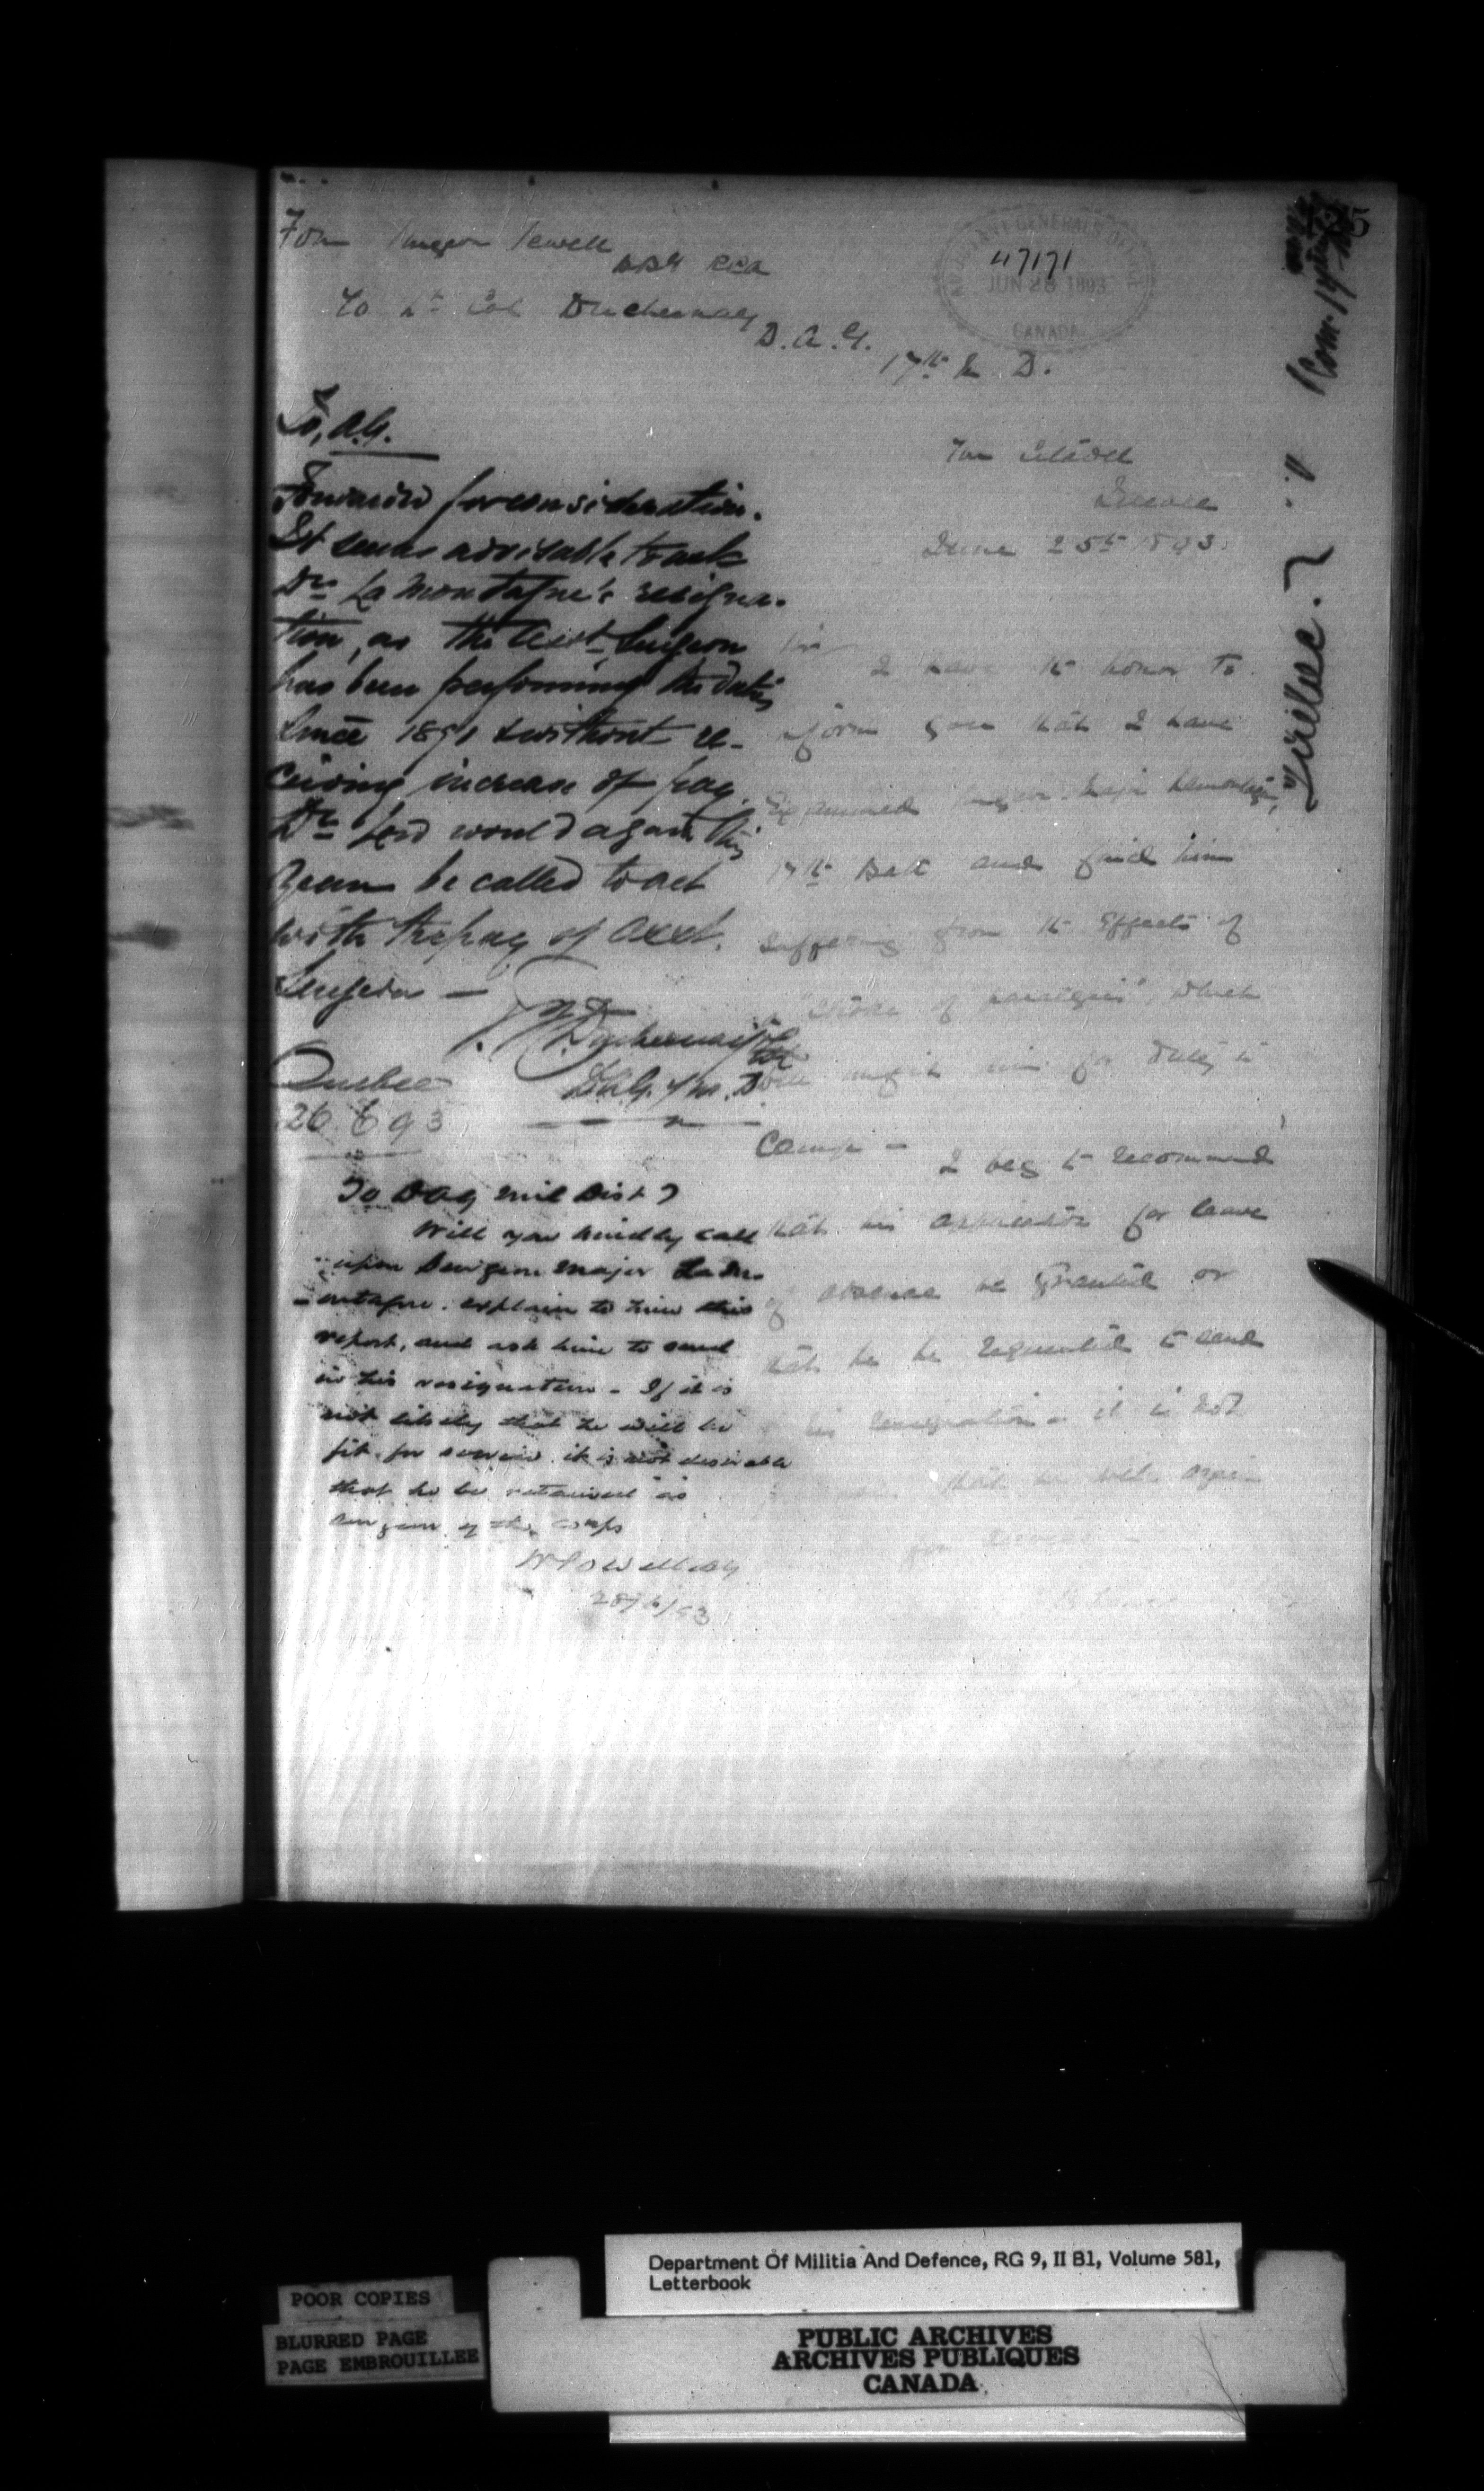 125
From Surgeon Sewell
RCA
To Lt Col Duchesnay
D.A.G.
ADJUTANT GENERAL'S OFFICE
47171
JUN 28 1893
CANADA
To, A.G.
Forwarded for consideration.
It seems advisable to ask
Dr. La Montagne's resigna-
tion, as the Asst. Surgeon
has been performing the duties
since 1891 & without re-
ceiving increase of pay.
Dr. would again this
year be called to act
with the pay of Asst.
Surgeon —
Duchesnay Lt Col
D.A.G. 7 M. D.
Quebec
26 6 93
The Citadel
Quebec
June 25th 1893.
Sir
I have the honor to
inform you that I have
Examined Surgeon Major Lamontagne,
17th Batt and find him
suffering from the effects of
a "stroke of paralysis", which
will unfit him for duty in
Camp — I beg to recommend
that his application for leave
of absence be granted or
that he be requested to send
his resignation – it is not
that he will again
for service —
To DAG Mil Dist 7
Will you kindly call
upon Surgeon Major Lam-
-ontagne. explain to him this
report, and ask him to send
in his resignation – If it is
not likely that he will be
fit for service it is not desirable
that he be retained as
surgeon of the corps
W Powell AG
28/6/93
POOR COPIES
BLURRED PAGE
PAGE EMBROUILLEE
Department Of Militia And Defence, RG 9, II B1, Volume 581,
Letterbook
PUBLIC ARCHIVES
ARCHIVES PUBLIQUES
CANADA